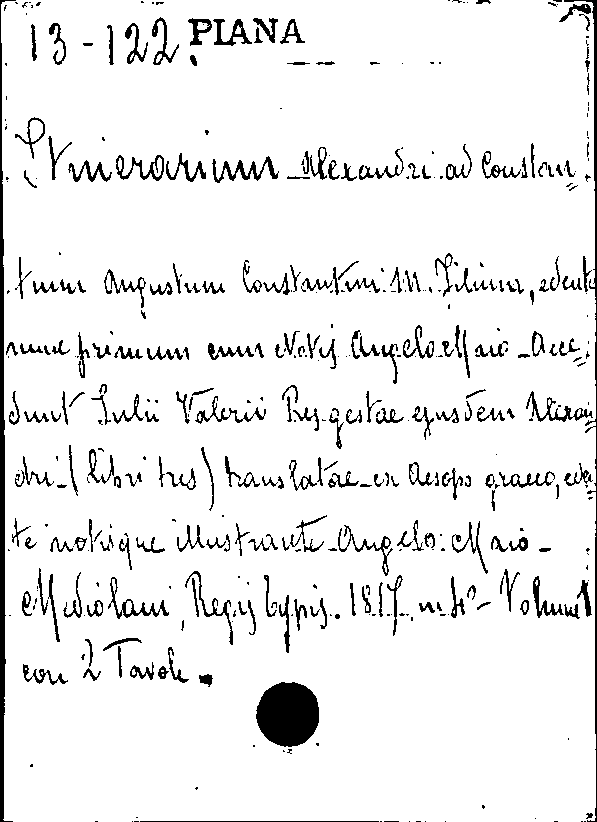 13-122. PIANA
Itinerarium Alexandri ad Constan=
tium Augustum Constantini M. Filium, edente
nunc primum cum Notis Angelo Maio - Acce=
dunt Iulii Valerii Res gestae ejusdem Alexan=
dri - (libri tres) translatae - ex Aesopo graeco, eden=
te notisque illustrante - Angelo Maio -
Mediolani, Regiis typis. 1817. in 4º - Volume 1
con 2 Tavole.